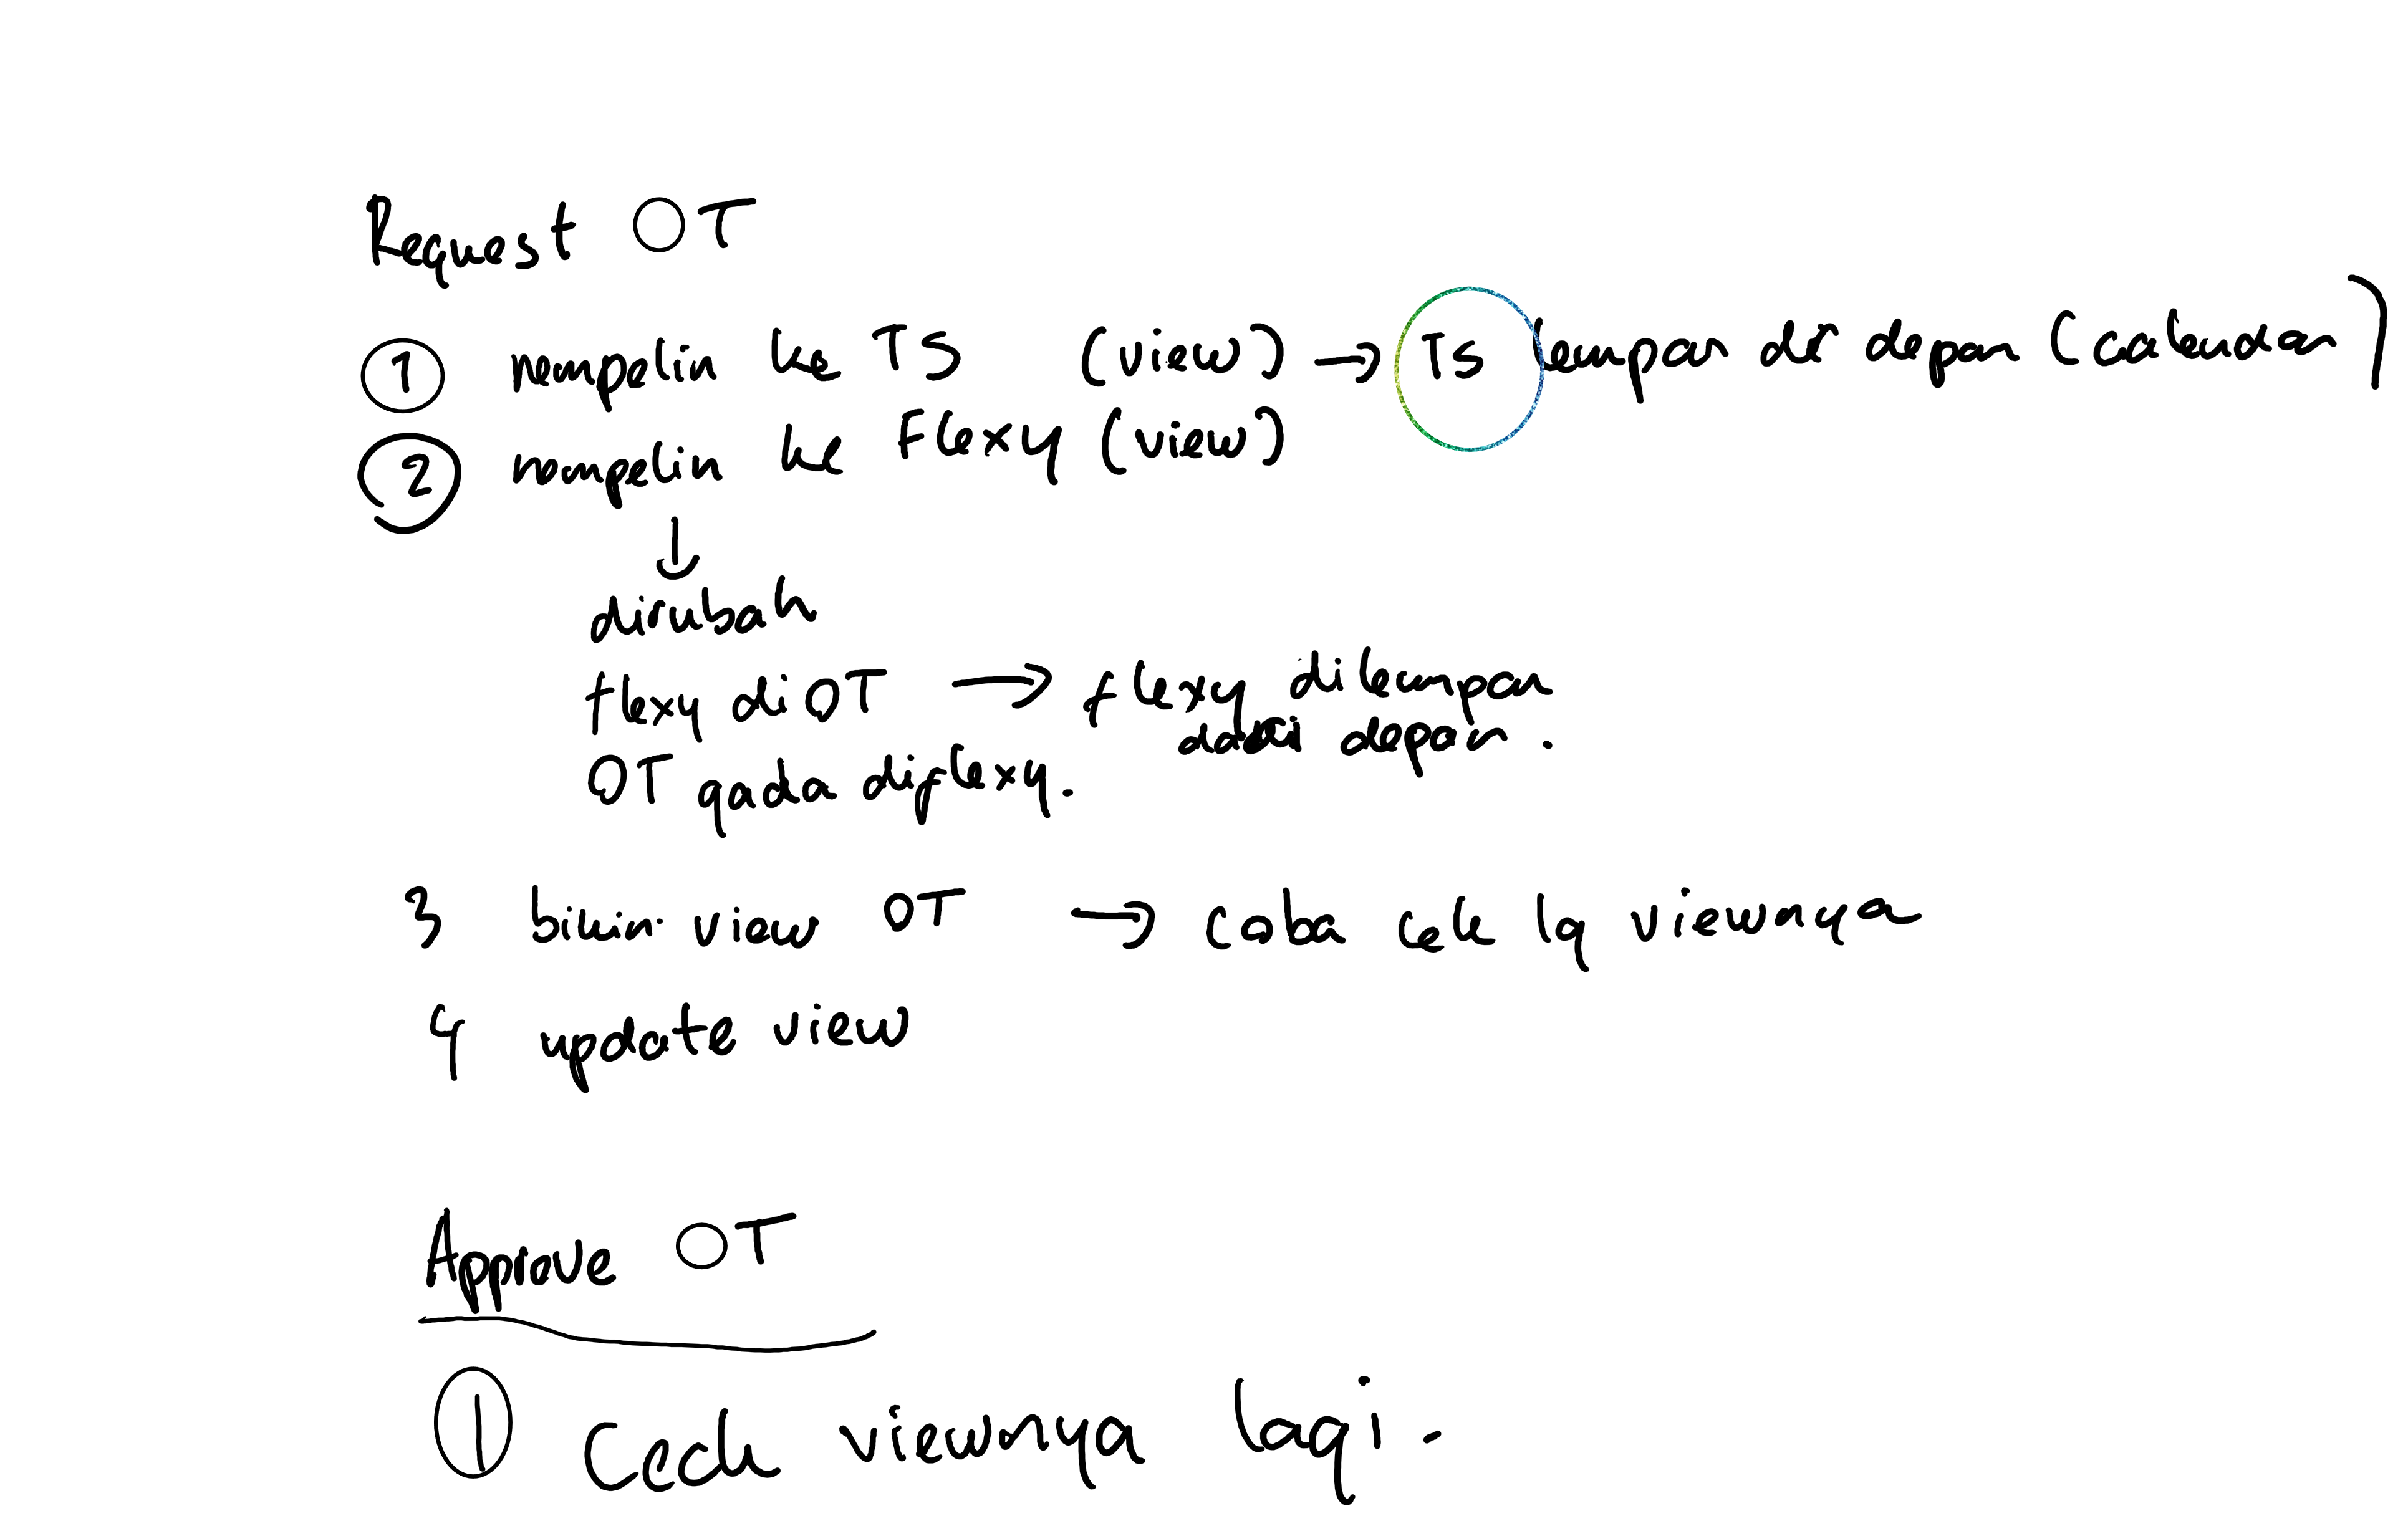 Request OT
1 nempelin ke TS (view) → TS lempar dr depan (calendar)
2 nempelin ke Flexy (view)
↓
dirubah
flexy di OT → flexy dilempar
dari depan.
OT gada diflexy.
3 bikin view OT → coba cek lg viewnya
4 update view
Approve OT
1 Cek viewnya lagi.